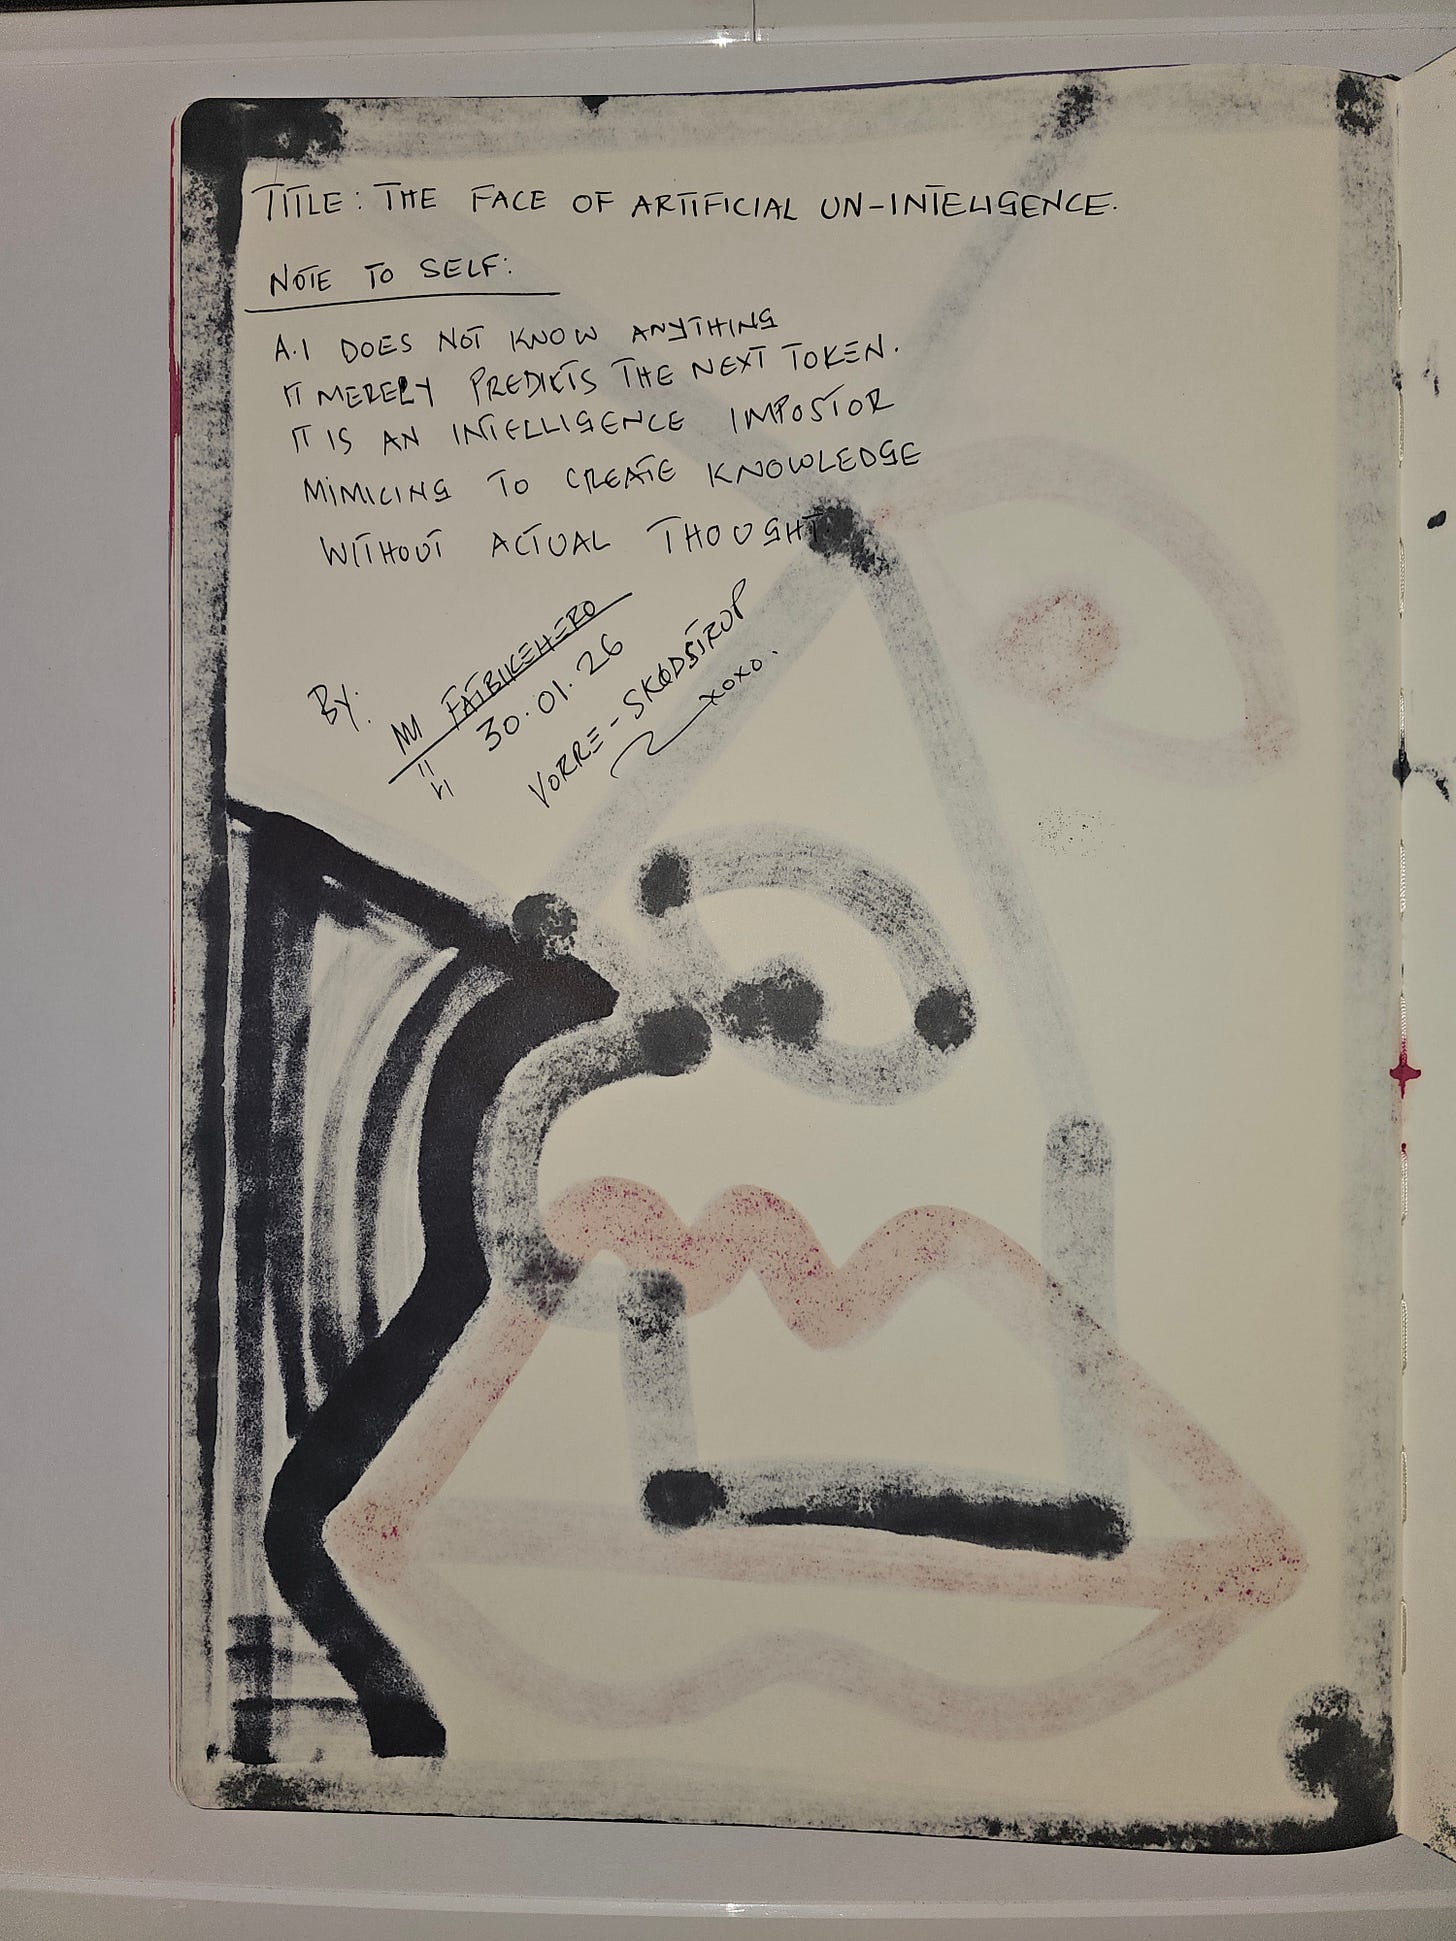 TITLE: THE FACE OF ARTIFICIAL UN-INTELIGENCE.
NOTE TO SELF:
A.I DOES NOT KNOW ANYTHING
IT MERELY PREDIKTS THE NEXT TOKEN.
IT IS AN INTELLIGENCE IMPOSTOR
MIMICING TO CREATE KNOWLEDGE
WITHOUT ACTUAL THOUGHT.
BY:
FATBIKEHERO
30.01.26
VORRE-SKØDSTRUP
xoxo.